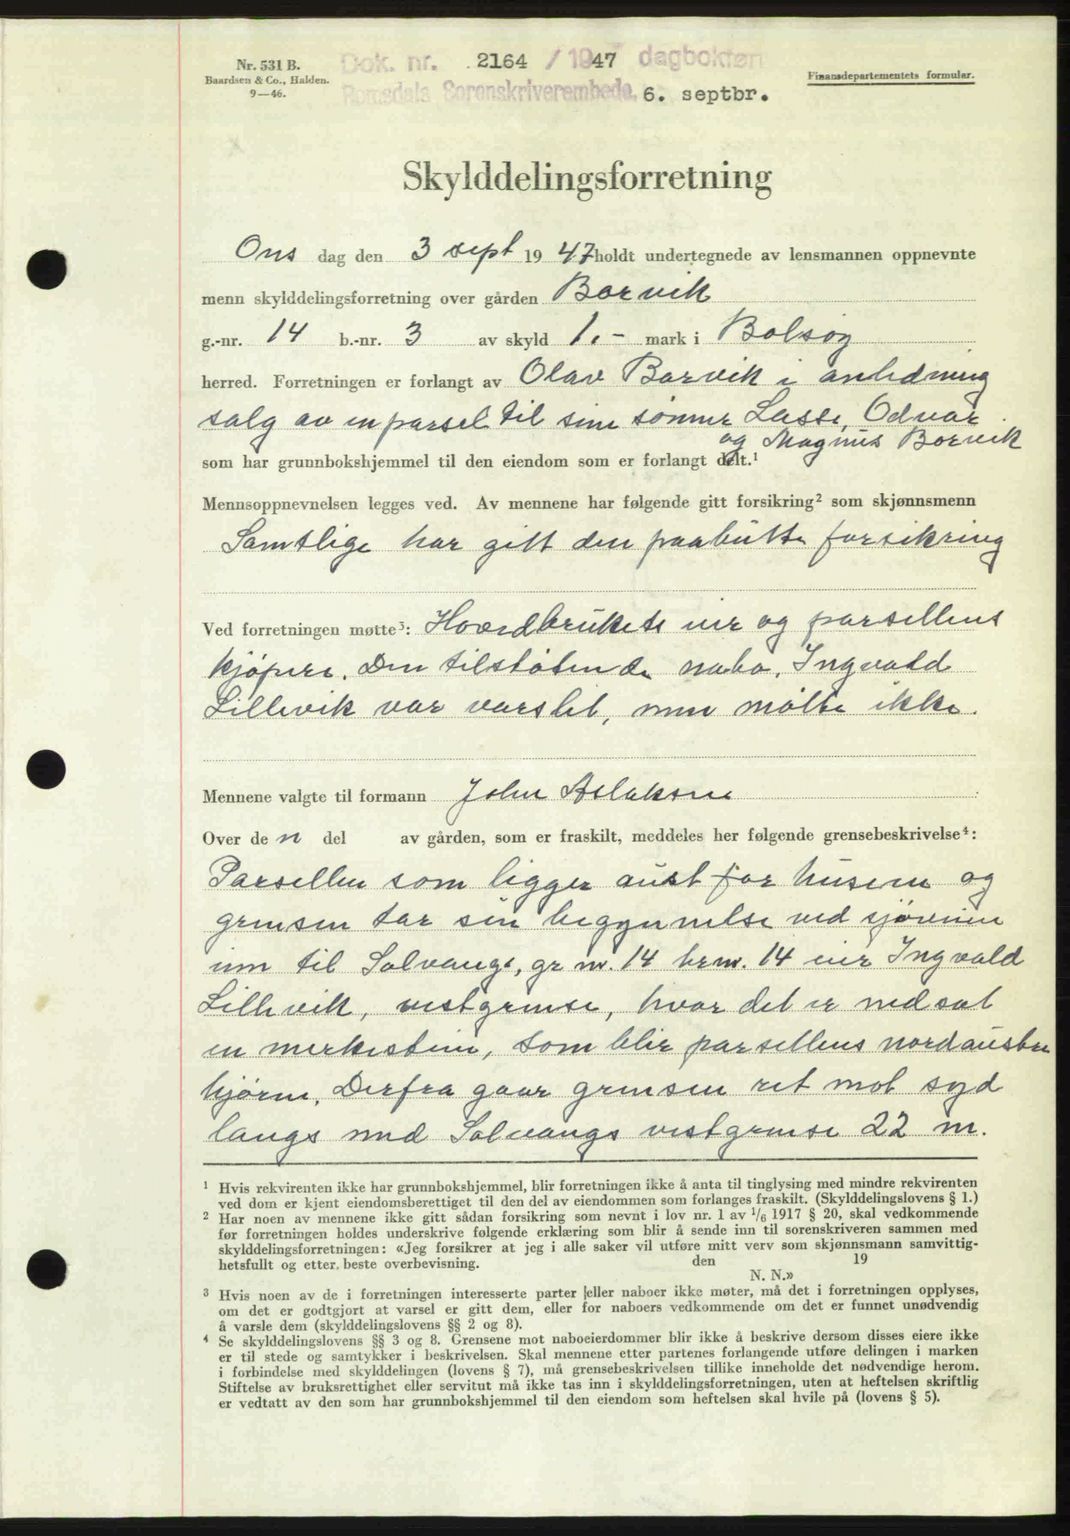 Nr. 531 B.
Baardsen & Co., Halden.
9—46.
Dok. nr. 2164 / 1947 dagbokføn
Romsdals Sorenskriverembede, 6. septbr.
Finansdepartementets formular.
Skylddelingsforretning
Ons dag den 3 sept 19 47 holdt undertegnede av lensmannen oppnevnte
menn skylddelingsforretning over gården Borvik
g.-nr. 14 b.-nr. 3 av skyld 1.- mark i Bolsøy
herred. Forretningen er forlangt av Olav Borvik i anledning
salg av en parsel til sine sønner Lasse, Odvar
og Magnus Borvik
som har grunnbokshjemmel til den eiendom som er forlangt delt.¹
Mennsoppnevnelsen legges ved. Av mennene har følgende gitt forsikring² som skjønnsmenn
Samtlige har gitt den paabudte forsikring
Ved forretningen møtte³: Hovedbrukets eier og parsellens
kjøpere. Den tilstøtende nabo, Ingvald
Lillevik var varslet, men møtte ikke.
Mennene valgte til formann John Aslaksen
Over de n del av gården, som er fraskilt, meddeles her følgende grensebeskrivelse⁴:
Parsellen som ligger aust for husene og
grensen tar sin begynnelse ved sjøveien
inn til Solvang, gr nr. 14 br.nr. 14 eier Ingvald
Lillevik, vestgrense, hvor det er nedsat
en merkestein, som blir parsellens nordaustre
hjørne. Derfra gaar grensen ret mot syd
langs med Solvangs vestgrense 22 m.
¹ Hvis rekvirenten ikke har grunnbokshjemmel, blir forretningen ikke å anta til tinglysing med mindre rekvirenten
ved dom er kjent eiendomsberettiget til den del av eiendommen som forlanges fraskilt. (Skylddelingslovens § 1.)
² Har noen av mennene ikke gitt sådan forsikring som nevnt i lov nr. 1 av ¹/₆ 1917 § 20, skal vedkommende
før forretningen holdes underskrive følgende erklæring som blir å sende inn til sorenskriveren sammen med
skylddelingsforretningen: «Jeg forsikrer at jeg i alle saker vil utføre mitt verv som skjønnsmann samvittig-
hetsfullt og etter beste overbevisning. den 19
N. N.»
³ Hvis noen av de i forretningen interesserte parter eller naboer ikke møter, må det i forretningen opplyses,
om det er godtgjort at varsel er gitt dem, eller for naboers vedkommende om det er funnet unødvendig
å varsle dem (skylddelingslovens §§ 2 og 8).
⁴ Se skylddelingslovens §§ 3 og 8. Grensene mot naboeierdommer blir ikke å beskrive dersom disses eiere ikke
er til stede og samtykker i beskrivelsen. Skal mennene etter partenes forlangende utføre delingen i marken
i forbindelse med skylddelingen (lovens § 7), må grensebeskrivelsen tillike inneholde det nødvendige herom.
Stiftelse av bruksrettighet eller servitut må ikke tas inn i skylddelingsforretningen, uten at heftelsen skriftlig
er vedtatt av den som har grunnbokshjemmel til den eiendom som heftelsen skal hvile på (lovens § 5).